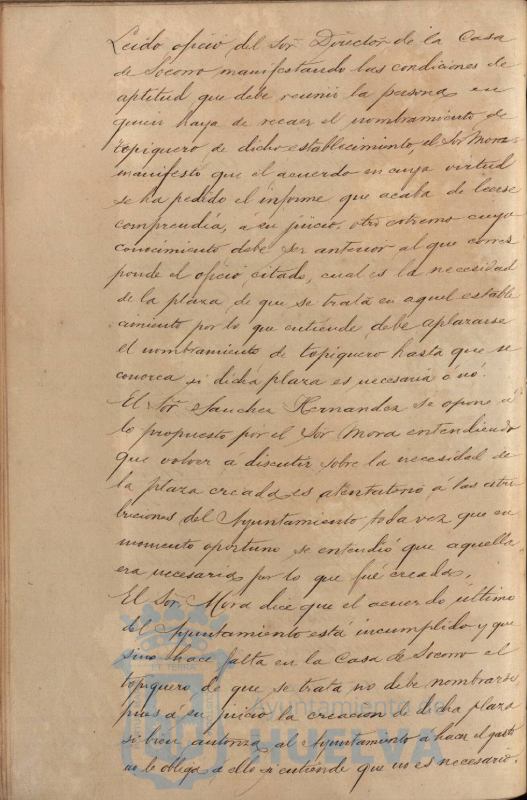 Leido oficio del Sor. Director de la Casa
de Socorro manifestando las condiciones de
aptitud que debe reunir la persona en
quien haya de recaer el nombramiento de
topiquero de dicho establecimiento, el Sor Mora
manifestó que el acuerdo en cuya virtud
se ha pedido el informe que acaba de leerse
comprendia, á su juicio, otro extremo cuyo
conocimiento debe ser anterior al que corres
ponde el oficio citado, cual es la necesidad
de la plaza de que se trata en aquel estable
cimiento por lo que entiende debe aplazarse
el nombramiento de topiquero hasta que se
conozca si dicha plaza es necesaria ó nó.
El Sor. Sanchez Hernandez se opone á
lo propuesto por el Sor Mora entendiendo
que volver á discutir sobre la necesidad de
la plaza creada es atentatorio á las atri
buciones del Ayuntamiento toda vez que en
momento oportuno se entendió que aquella
era necesaria por lo que fué creada.
El Sor. Mora dice que el acuerdo último
del Ayuntamiento está incumplido y que
sino hace falta en la Casa de Socorro el
topiquero de que se trata no debe nombrarse
pues á su juicio la creacion de dicha plaza
si bien autoriza al Ayuntamiento á hacer el gasto
no le obliga á ello si entiende que no es necesario.
Ayuntamiento de
HUELVA